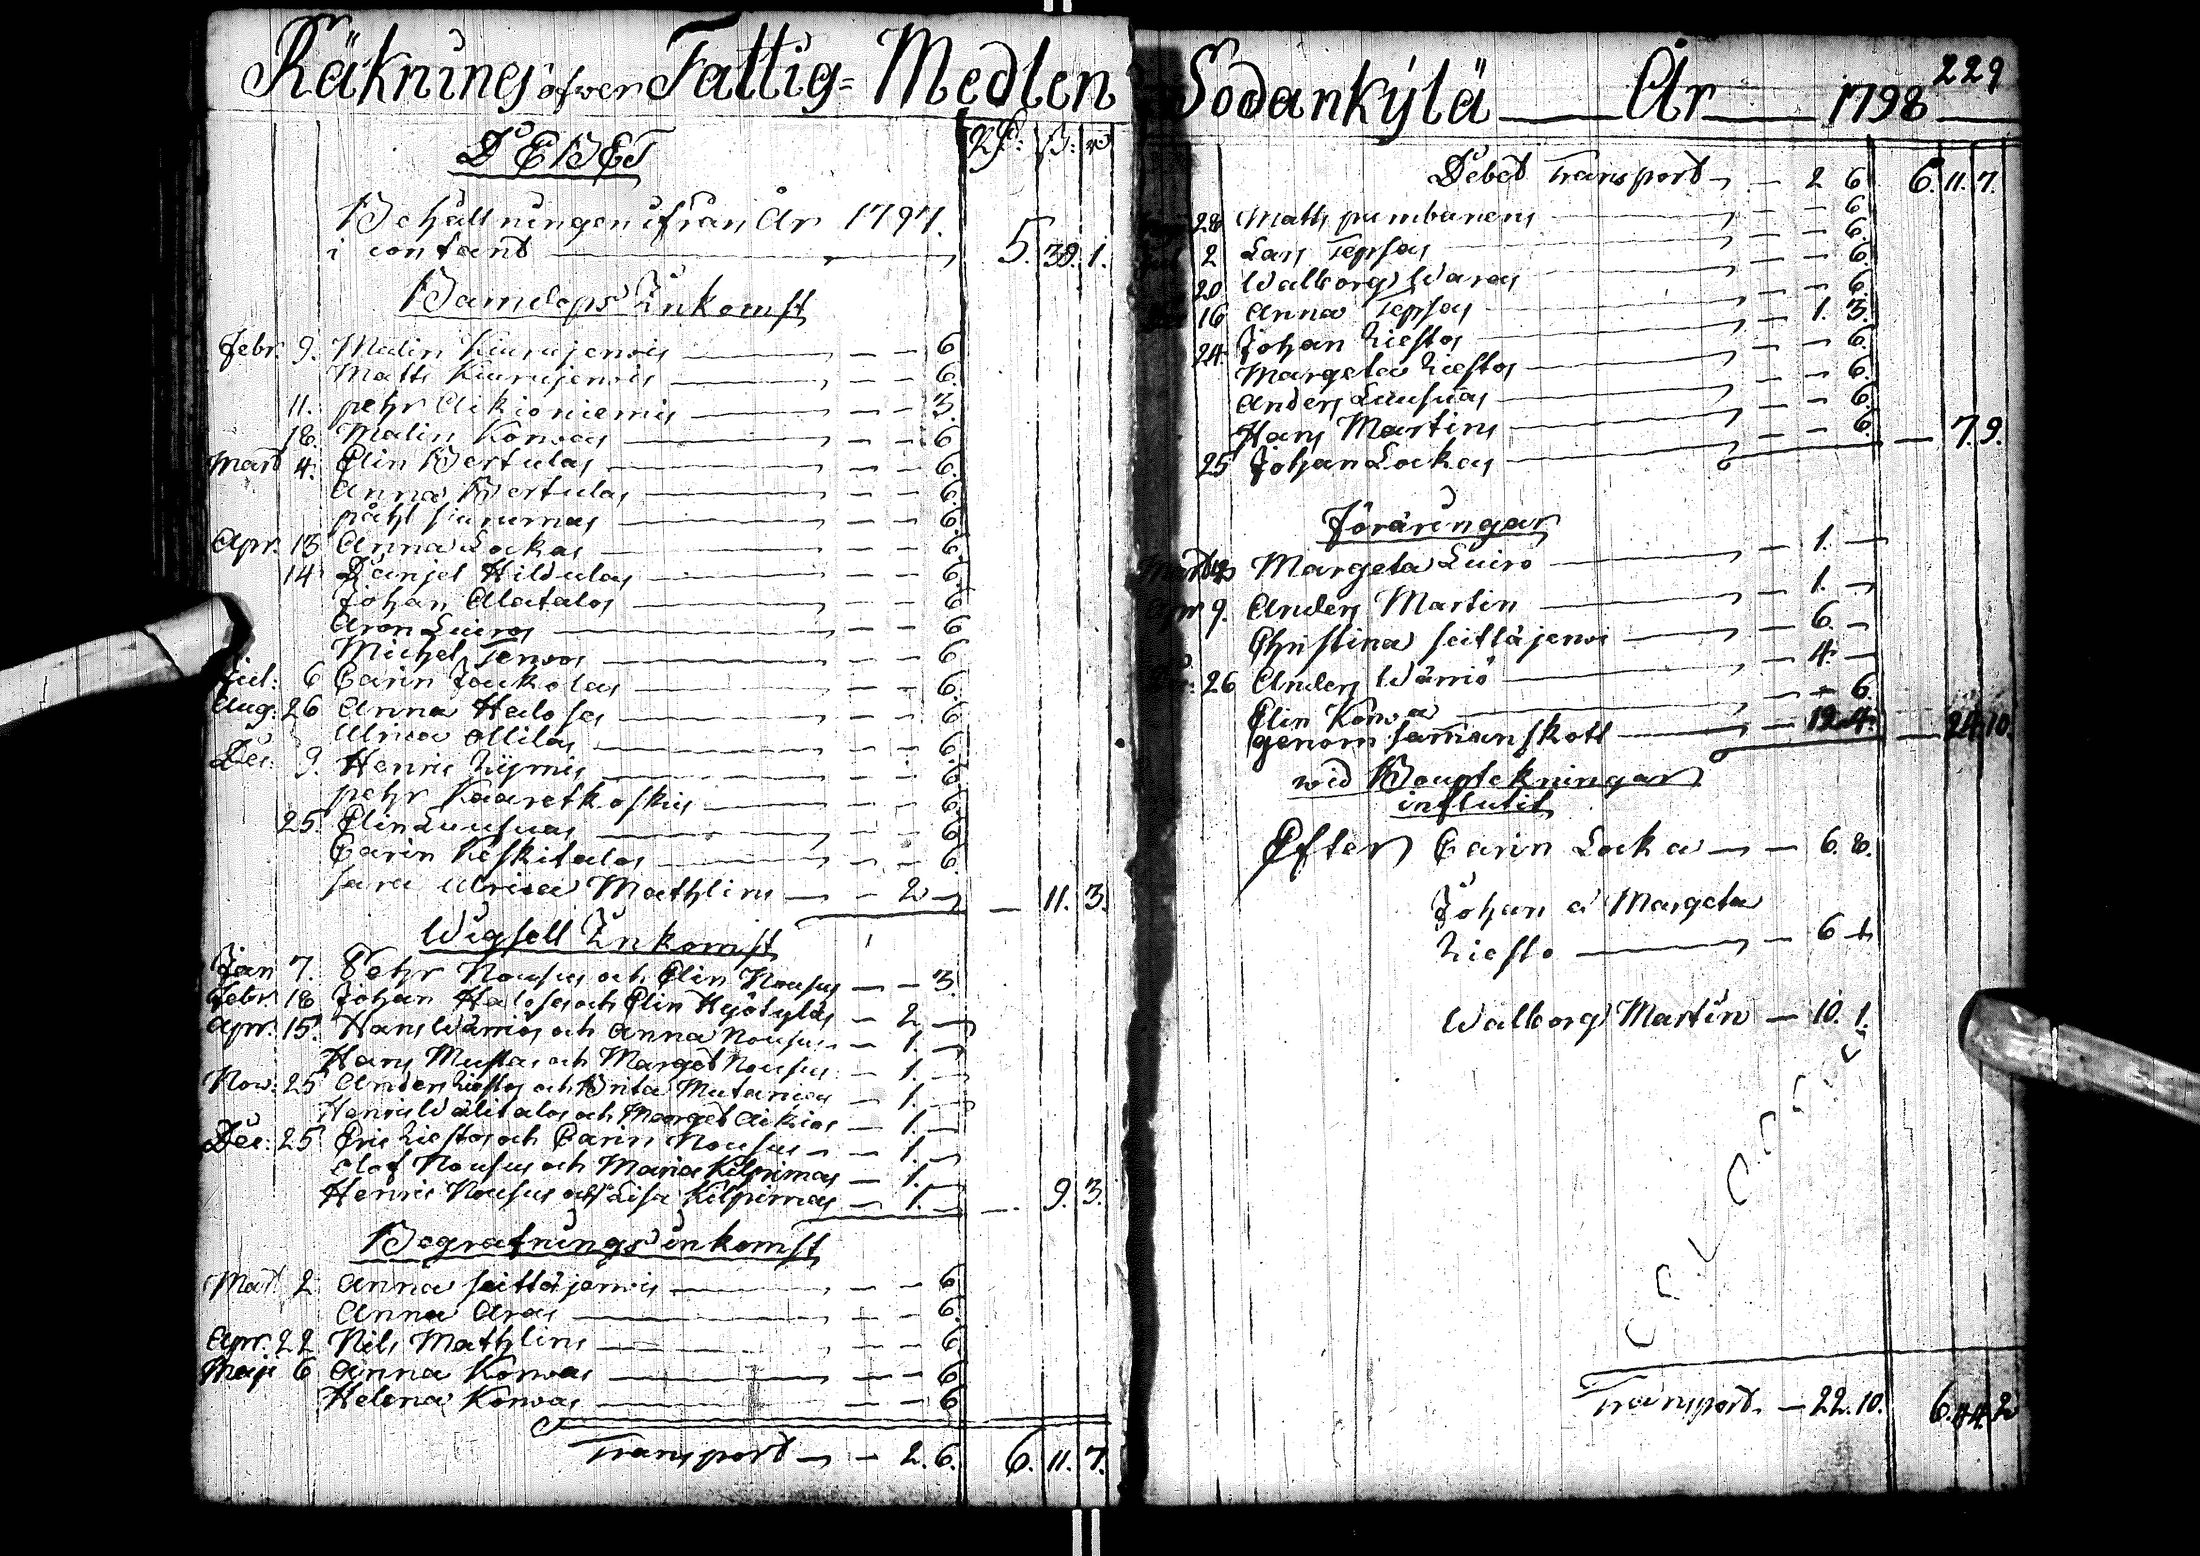 Räkning öfwer Fattig-Medlen
DEBET
Rd: ß: rst
Behållningen ifrån År 1797.
i contant 5. 39. 1.
Barndops Inkomst
Febr. 9. Malin Kiurujerwis 6
Matts Kiurujerwis 6.
11. pehr Aikioniemis 3.
18. Malin Korwas 6
Mart 4. Elin Bertulas 6.
Anna Bertulas 6.
påhl siurumas 6.
Apr. 13 Anna Lockas 6.
14 Danjel Hildulas 6.
Johan Alatalos 6
Aron Luiros 6
Michel Terwos 6
Jul: 6 Carin Joukolas 6.
Aug: 26 Anna Halosas 6
Ulrica Ollilas 6.
Dec. 9. Henric Liymis 6
pehr Kaaretkoskis 6.
25. Elin Luusuas 6
Carin Keskitalos 6.
sara Ulrica Mathlins 2 11. 3.
Wigsell Inkomst
Jan 7. Pehr Nousus och Elin Nousus 3
Febr 18 Johan Halosas och Elin Hyötyläs 2
Apr. 15. Hans Wärriös och Anna Nousus 1.
Hans Mustas och Marget Nousus 1.
Now. 25 Anders Liestos och Brita Mutanias 1.
Henric Wälitalos och Marget Aikios 1.
Dec. 25. Eric Liestos och Carin Nousus 1.
Olof Nousus och Maria Kilpimas 1.
Henric Nousus och Lisa Kilpimas 1. 9. 3.
Begrafnings inkomst
Mart. 2 Anna seittäjerwis 6
Anna Aras 6.
Apr. 22 Nils Mathlins 6
Maji 6 Anna Korwas 6
Helena Korwas 6
Transport 2. 6. 6. 11. 7.
Sodankylä År 1798
229
Debet Transport 2 6 6. 11. 7.
28 Matts pumbanens 6.
2 Lars Tepsas 6.
20 Walborg Waras 6.
16 Anna Tepsas 6.
24. Johan Liestos 1. 3.
Margeta Liestos 6.
Anders Luusuas 6.
Hans Martins 6.
25 Johan Lockas 6. 7. 9.
Föräringar
Margeta Luiro 1.
Apr 9. Anders Martin 1.
Christina seittäjerwi 6.
26 Anders Wärriö 4.
Elin Korwa 6.
genom samanskott 12. 4. 24. 10.
wid Bouptekningar
influtit
Efter Carin Locka 6. 8.
Johan å Margeta
Liesto 6 1.
Walborg Martin 10. 1.
Transport. 22. 10. 6. 44. 2